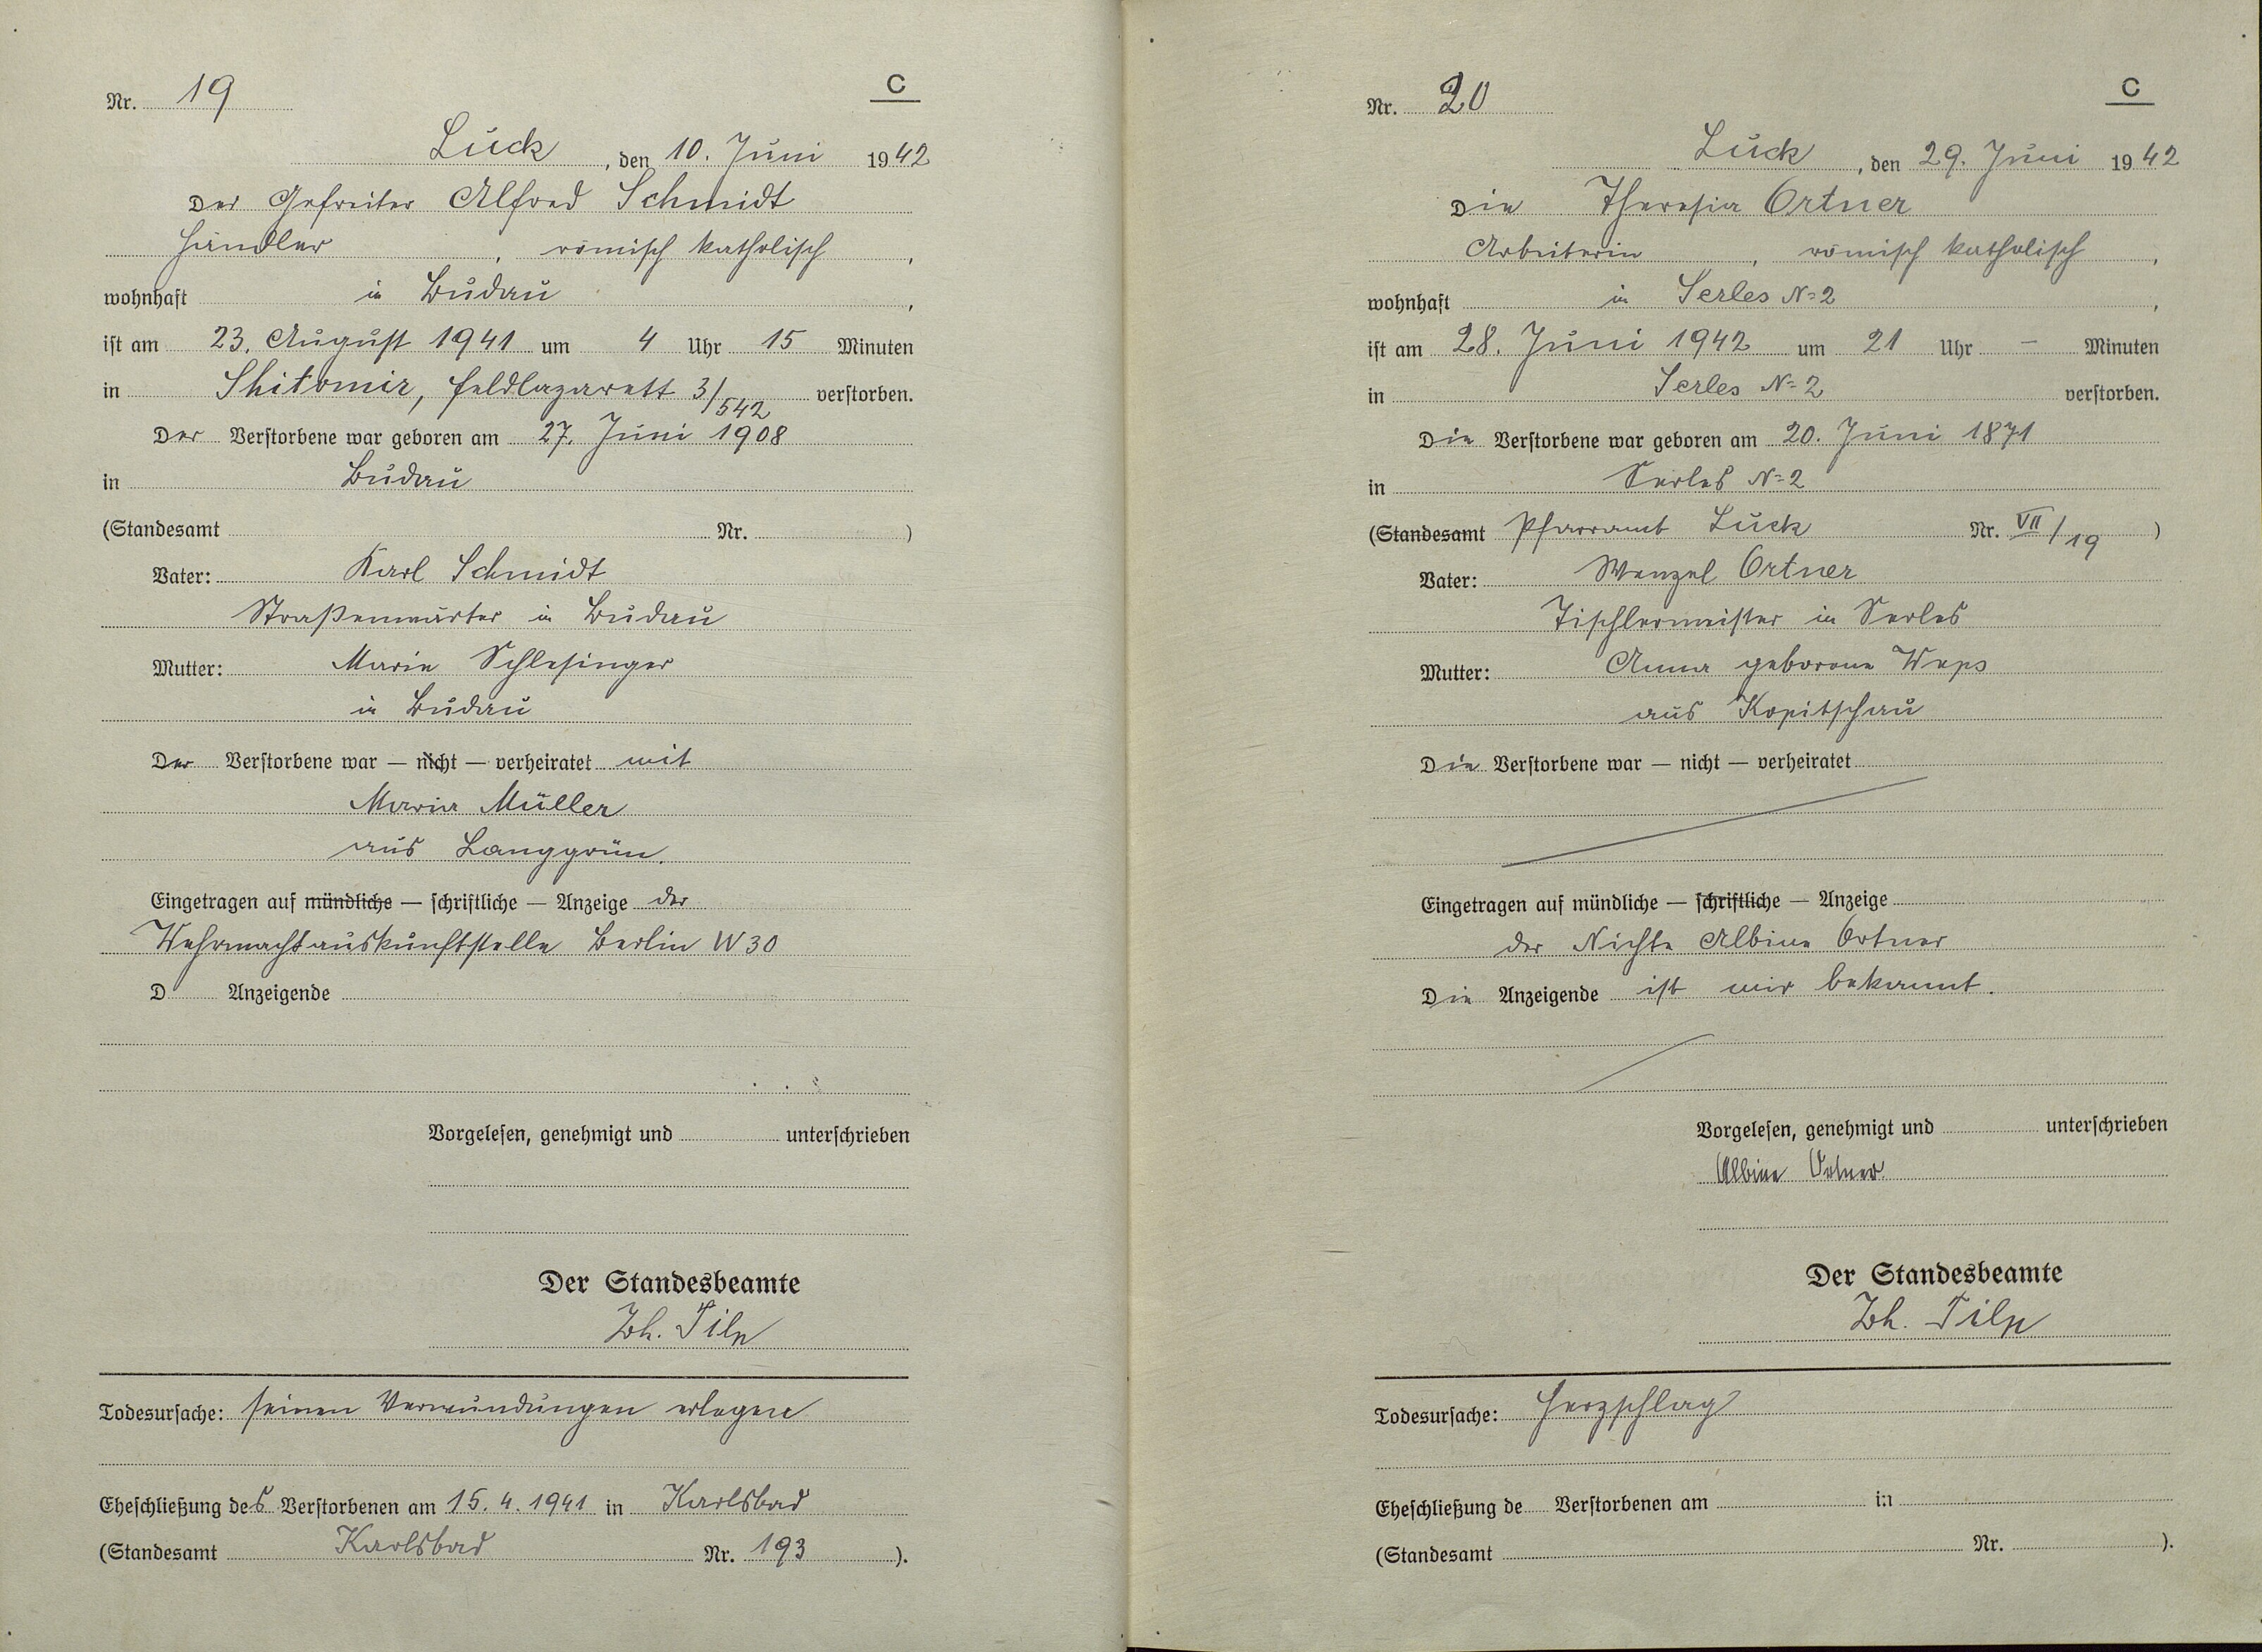 Nr. 19
C
Luck, den 10. Juni 1942
Der Gefreiter Alfred Schmidt
Händler, römisch katholisch,
wohnhaft in Budau,
ist am 23. August 1941 um 4 Uhr 15 Minuten
in Shitomir, Feldlazarett 3/542 verstorben.
Der Verstorbene war geboren am 27. Juni 1908
in Budau
(Standesamt Nr. )
Vater: Karl Schmidt
Straßenwärter in Budau
Mutter: Marie Schlesinger
in Budau
Der Verstorbene war — nicht — verheiratet mit
Maria Müller
aus Langgrün.
Eingetragen auf mündliche — schriftliche — Anzeige der
Wehrmachtauskunftstelle Berlin W 30
D Anzeigende
Vorgelesen, genehmigt und unterschrieben
Der Standesbeamte
Joh. Tilp
Todesursache: seinen Verwundungen erlegen
Eheschließung des Verstorbenen am 15. 4. 1941 in Karlsbad
(Standesamt Karlsbad Nr. 193 ).
Nr. 20
C
Luck, den 29. Juni 1942
Die Theresia Ortner
Arbeiterin, römisch katholisch,
wohnhaft in Serles N=2,
ist am 28. Juni 1942 um 21 Uhr – Minuten
in Serles N=2 verstorben.
Die Verstorbene war geboren am 20. Juni 1871
in Serles N=2
(Standesamt Pfarramt Luck Nr. VII/19 )
Vater: Wenzel Ortner
Tischlermeister in Serles
Mutter: Anna geborene Weps
aus Kopitschau
Die Verstorbene war — nicht — verheiratet
Eingetragen auf mündliche — schriftliche — Anzeige
der Nichte Albine Ortner
Die Anzeigende ist mir bekannt.
Vorgelesen, genehmigt und unterschrieben
Albine Ortner.
Der Standesbeamte
Joh. Tilp
Todesursache: Herzschlag
Eheschließung de Verstorbenen am in
(Standesamt Nr. ).